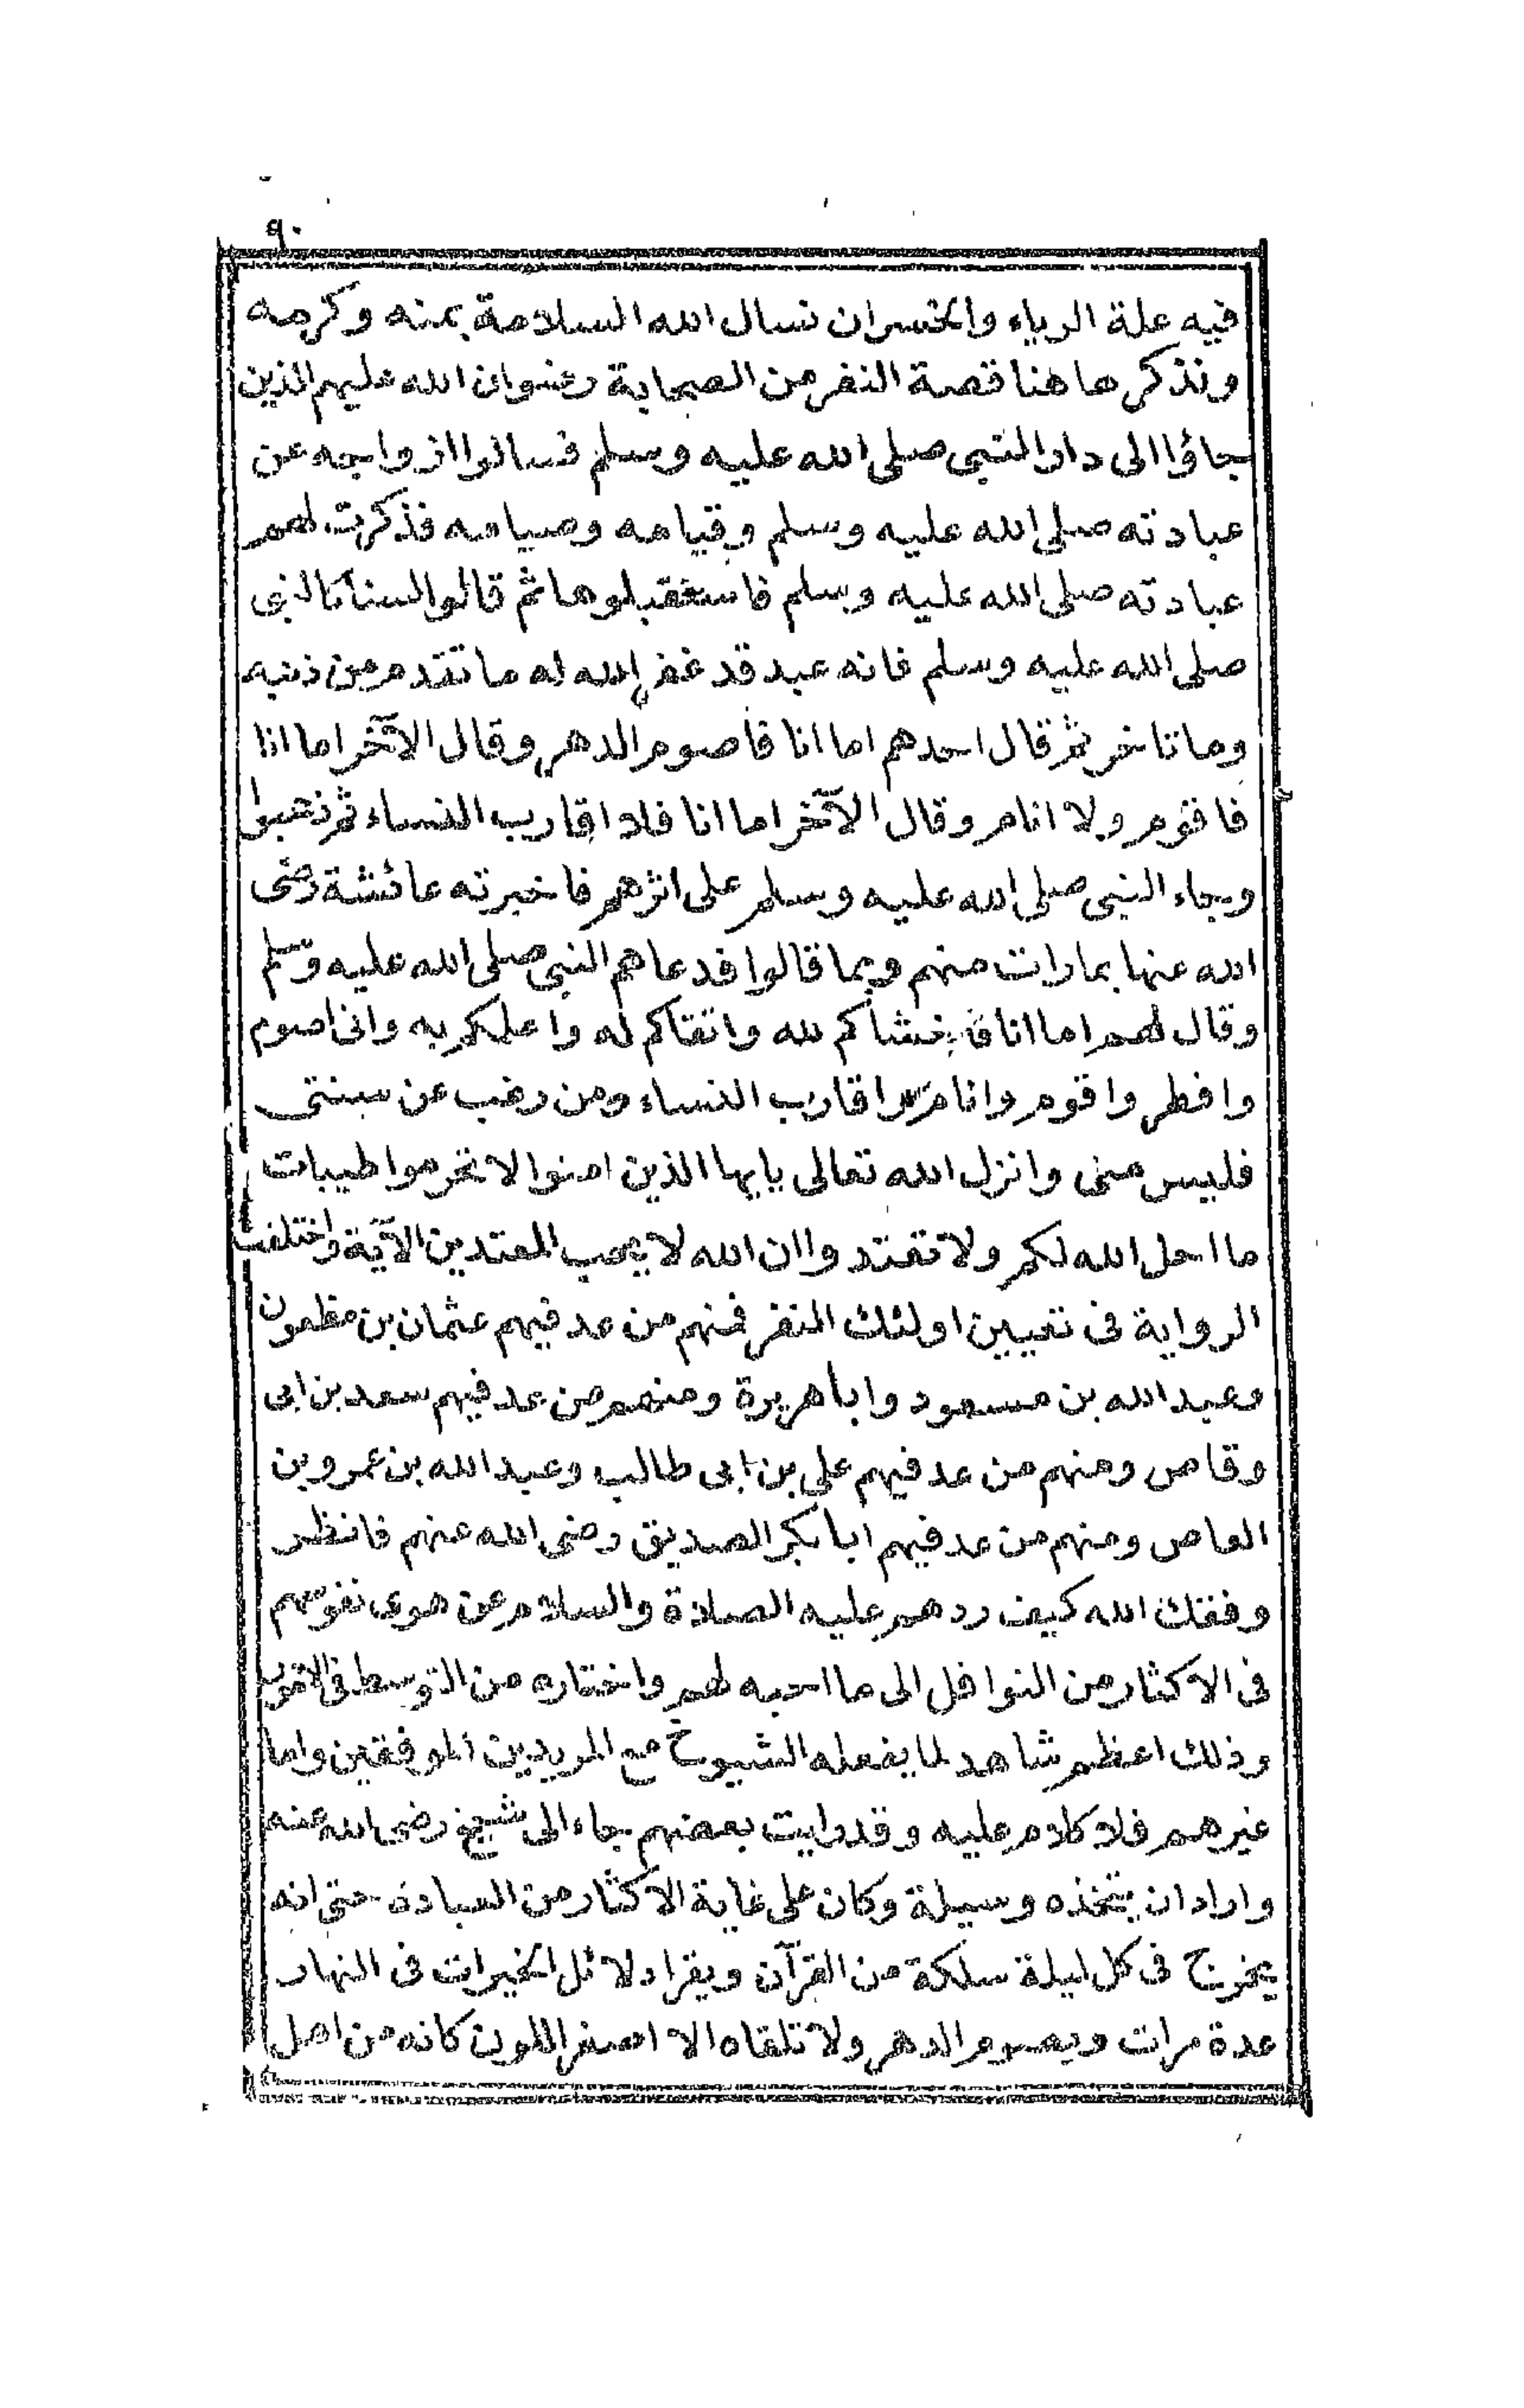 ٩٠
فيه علة الرياء والخسران نسال الله السلامة بمنه وكرمه
ونذكر هاهنا قصة النفر من الصحابة رضوان الله عليهم الذين
جاؤا الى دار النبى صلى الله عليه وسلم فسالوا ازواجه عن
عبادته صلى الله عليه وسلم وقيامه وصيامه فذكرت لهم
عبادته صلى الله عليه وسلم فاستقبلوها ثم قالوا لسنا كالنبى
صلى الله عليه وسلم فانه عبد قد غفر الله له ما تقدم من ذنبه
وما تاخر ثم قال احدهم اما انا فأصوم الدهر وقال الآخر اما انا
فاقوم ولا انام وقال الآخر اما انا فلا اقارب النساء ثم ذهبوا
وجاء النبى صلى الله عليه وسلم على اثرهم فاخبرته عائشة رضى
الله عنها بما رات منهم وبما قالوا فدعاهم النبى صلى الله عليه وسلم
وقال لهم اما انا فأخشاكم لله واتقاكم له واعلمكم به وانى اصوم
وافطر واقوم وانام واقارب النساء ومن رغب عن سنتى
فليس منى وانزل الله تعالى يايها الذين امنوا لا تحرموا طيبات
ما احل الله لكم ولا تعتدوا ان الله لا يحب المعتدين الآية واختلفت
الرواية فى تعيين اولئك النفر فمنهم من عد فيهم عثمان بن مظعون
وعبد الله بن مسعود وابا هريرة ومنهم من عد فيهم سعد بن ابى
وقاص ومنهم من عد فيهم على بن ابى طالب وعبد الله بن عمرو بن
العاص ومنهم من عد فيهم ابا بكر الصديق رضى الله عنهم فانظر
وفقك الله كيف ردهم عليه الصلاة والسلام عن هوى نفوسهم
فى الاكثار من النوافل الى ما احبه لهم واختاره من التوسط فى الامور
وذلك اعظم شاهد لما يفعله الشيوخ مع المريدين الموفقين واما
غيرهم فلا كلام عليه وقد رايت بعضهم جاء الى شيخ رضى الله عنه
واراد ان يتخذه وسيلة وكان على غاية الاكثار من العبادة حتى انه
يخرج فى كل ليلة سلكة من القرآن ويقرا دلائل الخيرات فى النهار
عدة مرات ويصوم الدهر ولا تلقاه الا اصفر اللون كانه من اهل